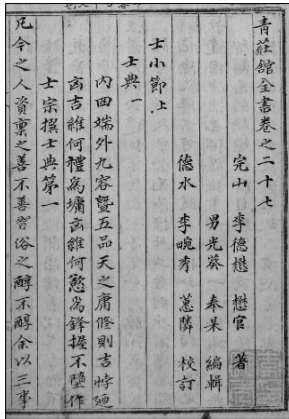 青莊館全書卷之二十七
完山 李德懋 懋官 著
男光葵 奉杲 編輯
德水 李畹秀 蕙隣 校訂
士小節上
士典一
內四端外九容曁五品天之庸修則吉悖廼
㐫吉維何禮為墉㐫維何慾為鋒握不墮作
士宗撰士典第一
凡今之人資稟之善不善習俗之醇不醇余以三事